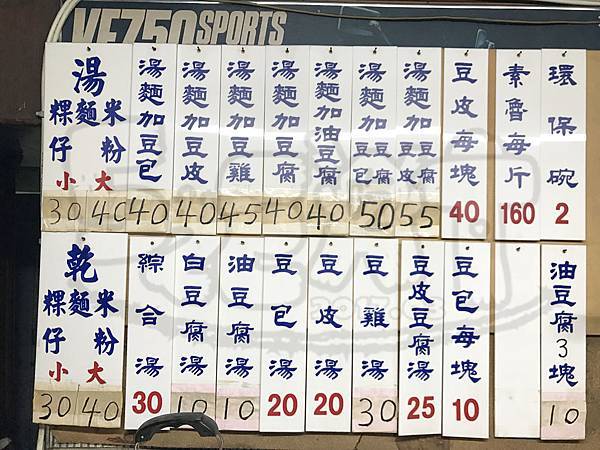 VF750SPORTS
湯
粿仔 麵 米粉
小 大
30 40
湯麵加豆包
40
湯麵加豆皮
40
湯麵加豆雞
45
湯麵加豆腐
40
湯麵加油豆腐
40
湯麵加豆包豆腐
50
湯麵加豆皮豆腐
55
豆皮每塊
40
素會每斤
160
環保碗
2
乾
粿仔 麵 米粉
小 大
30 40
綜合湯
30
白豆腐湯
10
油豆腐湯
10
豆包湯
20
豆皮湯
20
豆雞湯
30
豆皮豆腐湯
25
豆包每塊
10
油豆腐3塊
10